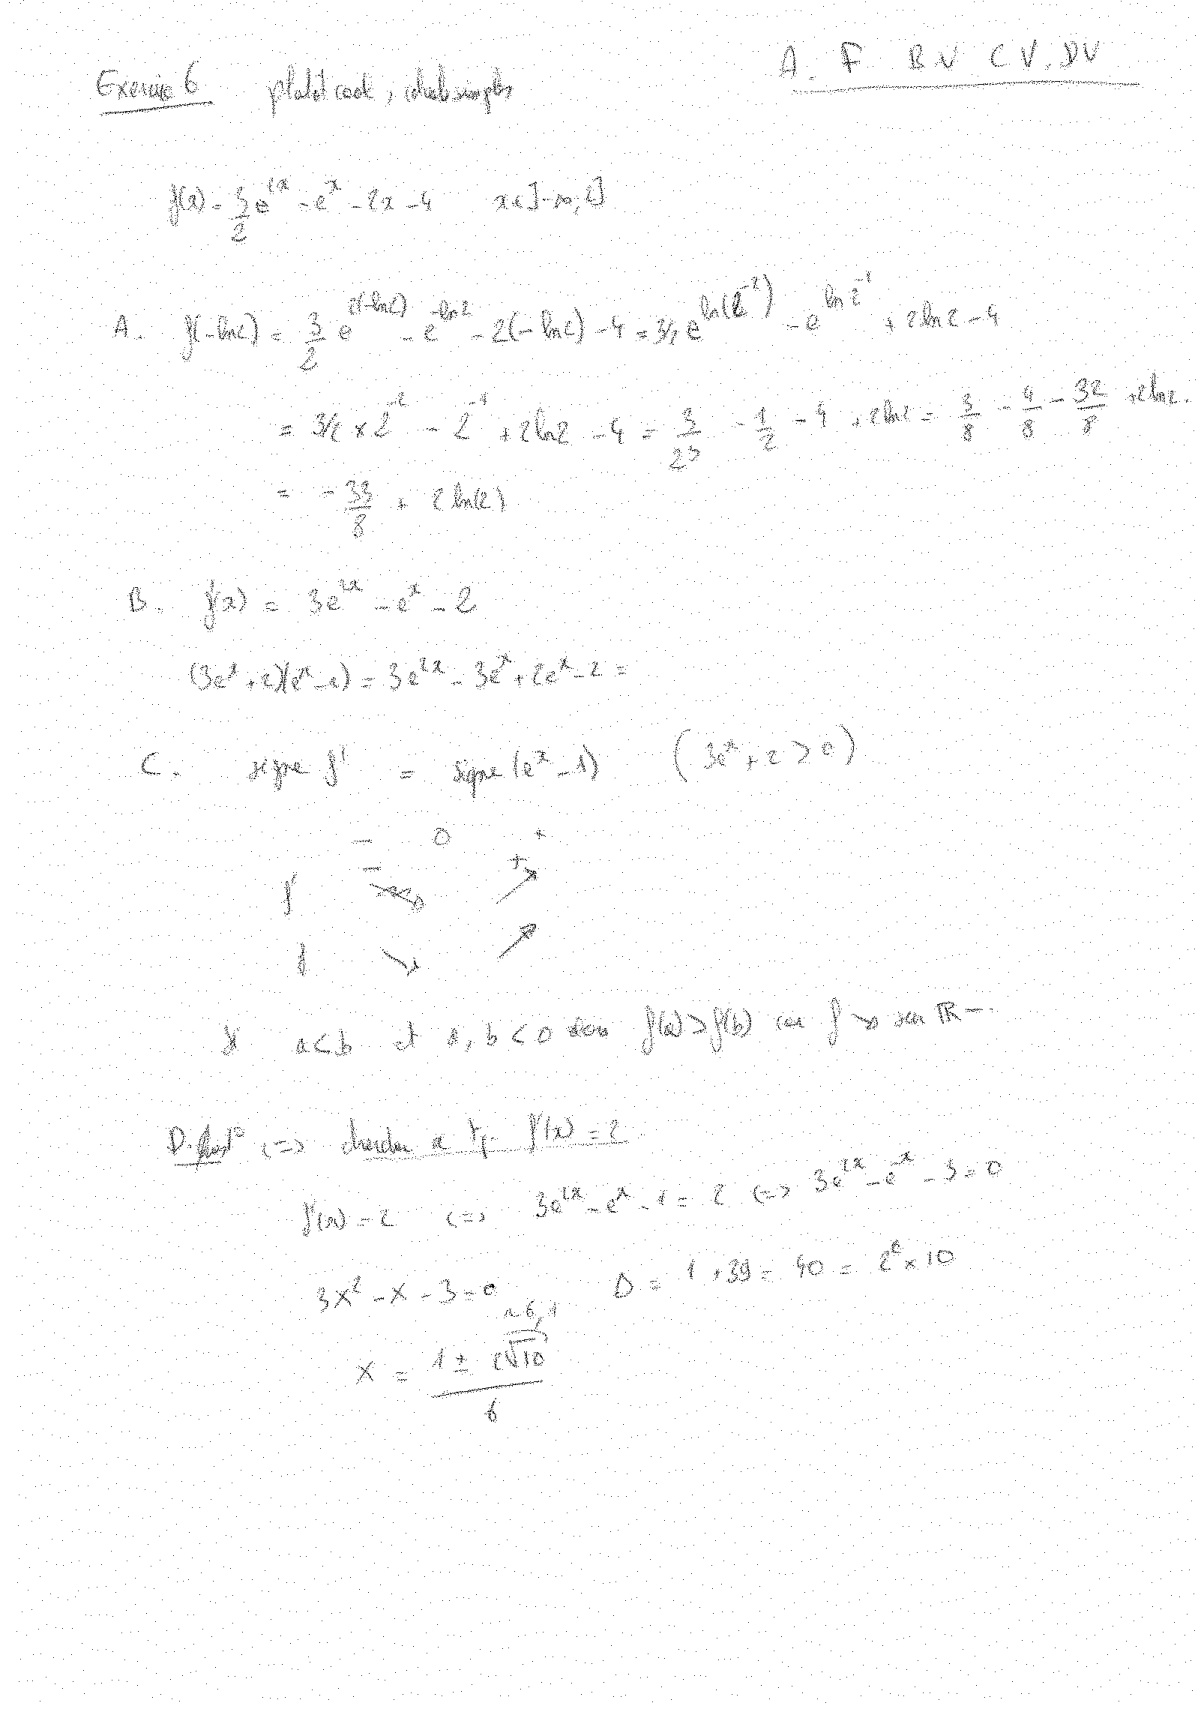 A. F B.V C V. D V
Exercice 6 plutôt cool, calculs simples
f(x) = 3/2 e^{2x} - e^x - 2x - 4 x ∈ ]-∞, 2]
A. f(-ln2) = 3/2 e^{2(-ln2)} - e^{-ln2} - 2(-ln2) - 4 = 3/2 e^{ln(2^{-2})} - e^{ln 2^{-1}} + 2ln2 - 4
= 3/2 × 2^{-2} - 2^{-1} + 2ln2 - 4 = 3/2^3 - 1/2 - 4 + 2ln2 = 3/8 - 4/8 - 32/8 + 2ln2.
= - 33/8 + 2 ln(2)
B. f'(x) = 3e^{2x} - e^x - 2
(3e^x + 2)(e^x - 1) = 3e^{2x} - 3e^x + 2e^x - 2 =
C. signe f' = signe (e^x - 1) (3e^x + 2 > 0)
- 0 +
f' - +
f ↘ ↗
si a < b et a, b < 0 alors f(a) > f(b) car f ↘ sur ℝ-
D. ⟺ chercher x tq. f'(x) = 2
f'(x) = 2 ⟺ 3e^{2x} - e^x - 1 = 2 ⟺ 3e^{2x} - e^x - 3 = 0
3X² - X - 3 = 0 Δ = 1 + 39 = 40 = 2² × 10
~6,1
X = (1 ± 2√10)/6